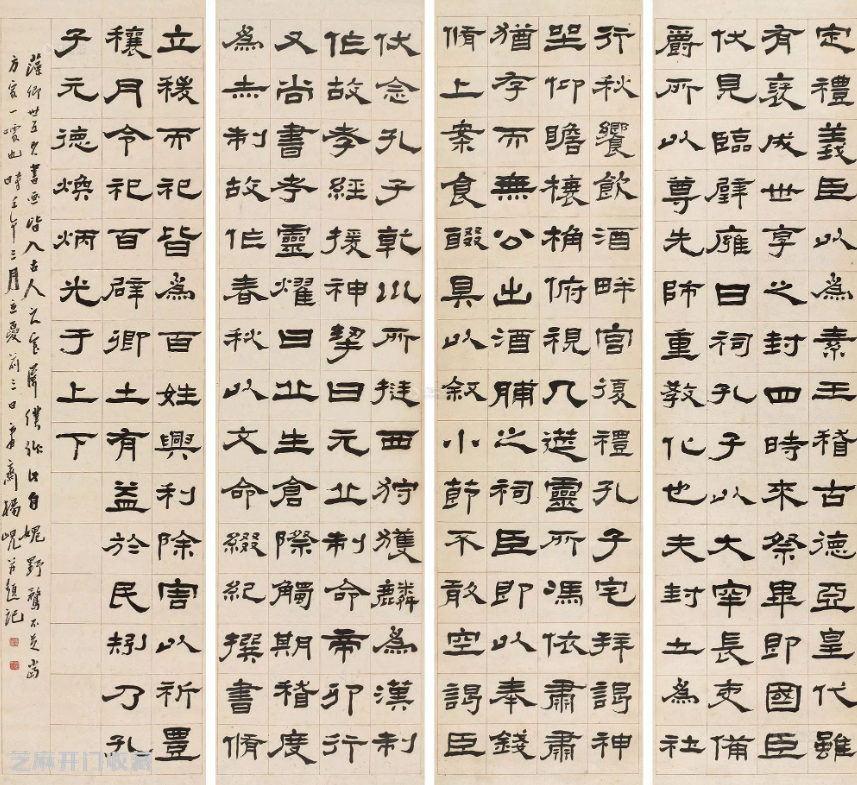 定禮義臣以為素王稽古德亞皇代雖
有襃成世享之封四時來祭畢即國臣
伏見臨辟雍日祠孔子以大宰長吏備
爵所以尊先師重教化也夫封土為社
行秋饗飲酒畔宮復禮孔子宅拜謁神
坐仰瞻榱桷俯視几筵靈所馮依肅肅
猶存而無公出酒脯之祠臣即以奉錢
脩上案食醊具以叙小節不敢空謁臣
伏念孔子乾巛所挺西狩獲麟為漢制
作故孝經援神挈曰元丘制命帝卯行
又尚書考靈燿曰丘生倉際觸期稽度
為赤制故作春秋以文命綴紀撰書脩
立稷而祀皆為百姓興利除害以祈豊
穰月令祀百辟卿士有益於民矧乃孔
子元德煥炳光于上下
卿世五兄書画皆入古人之室屏僕作此自媿野鶩不足当
方家一噱也時壬午三月立夏前三日齋楊峴并題記
艺麻开门收藏